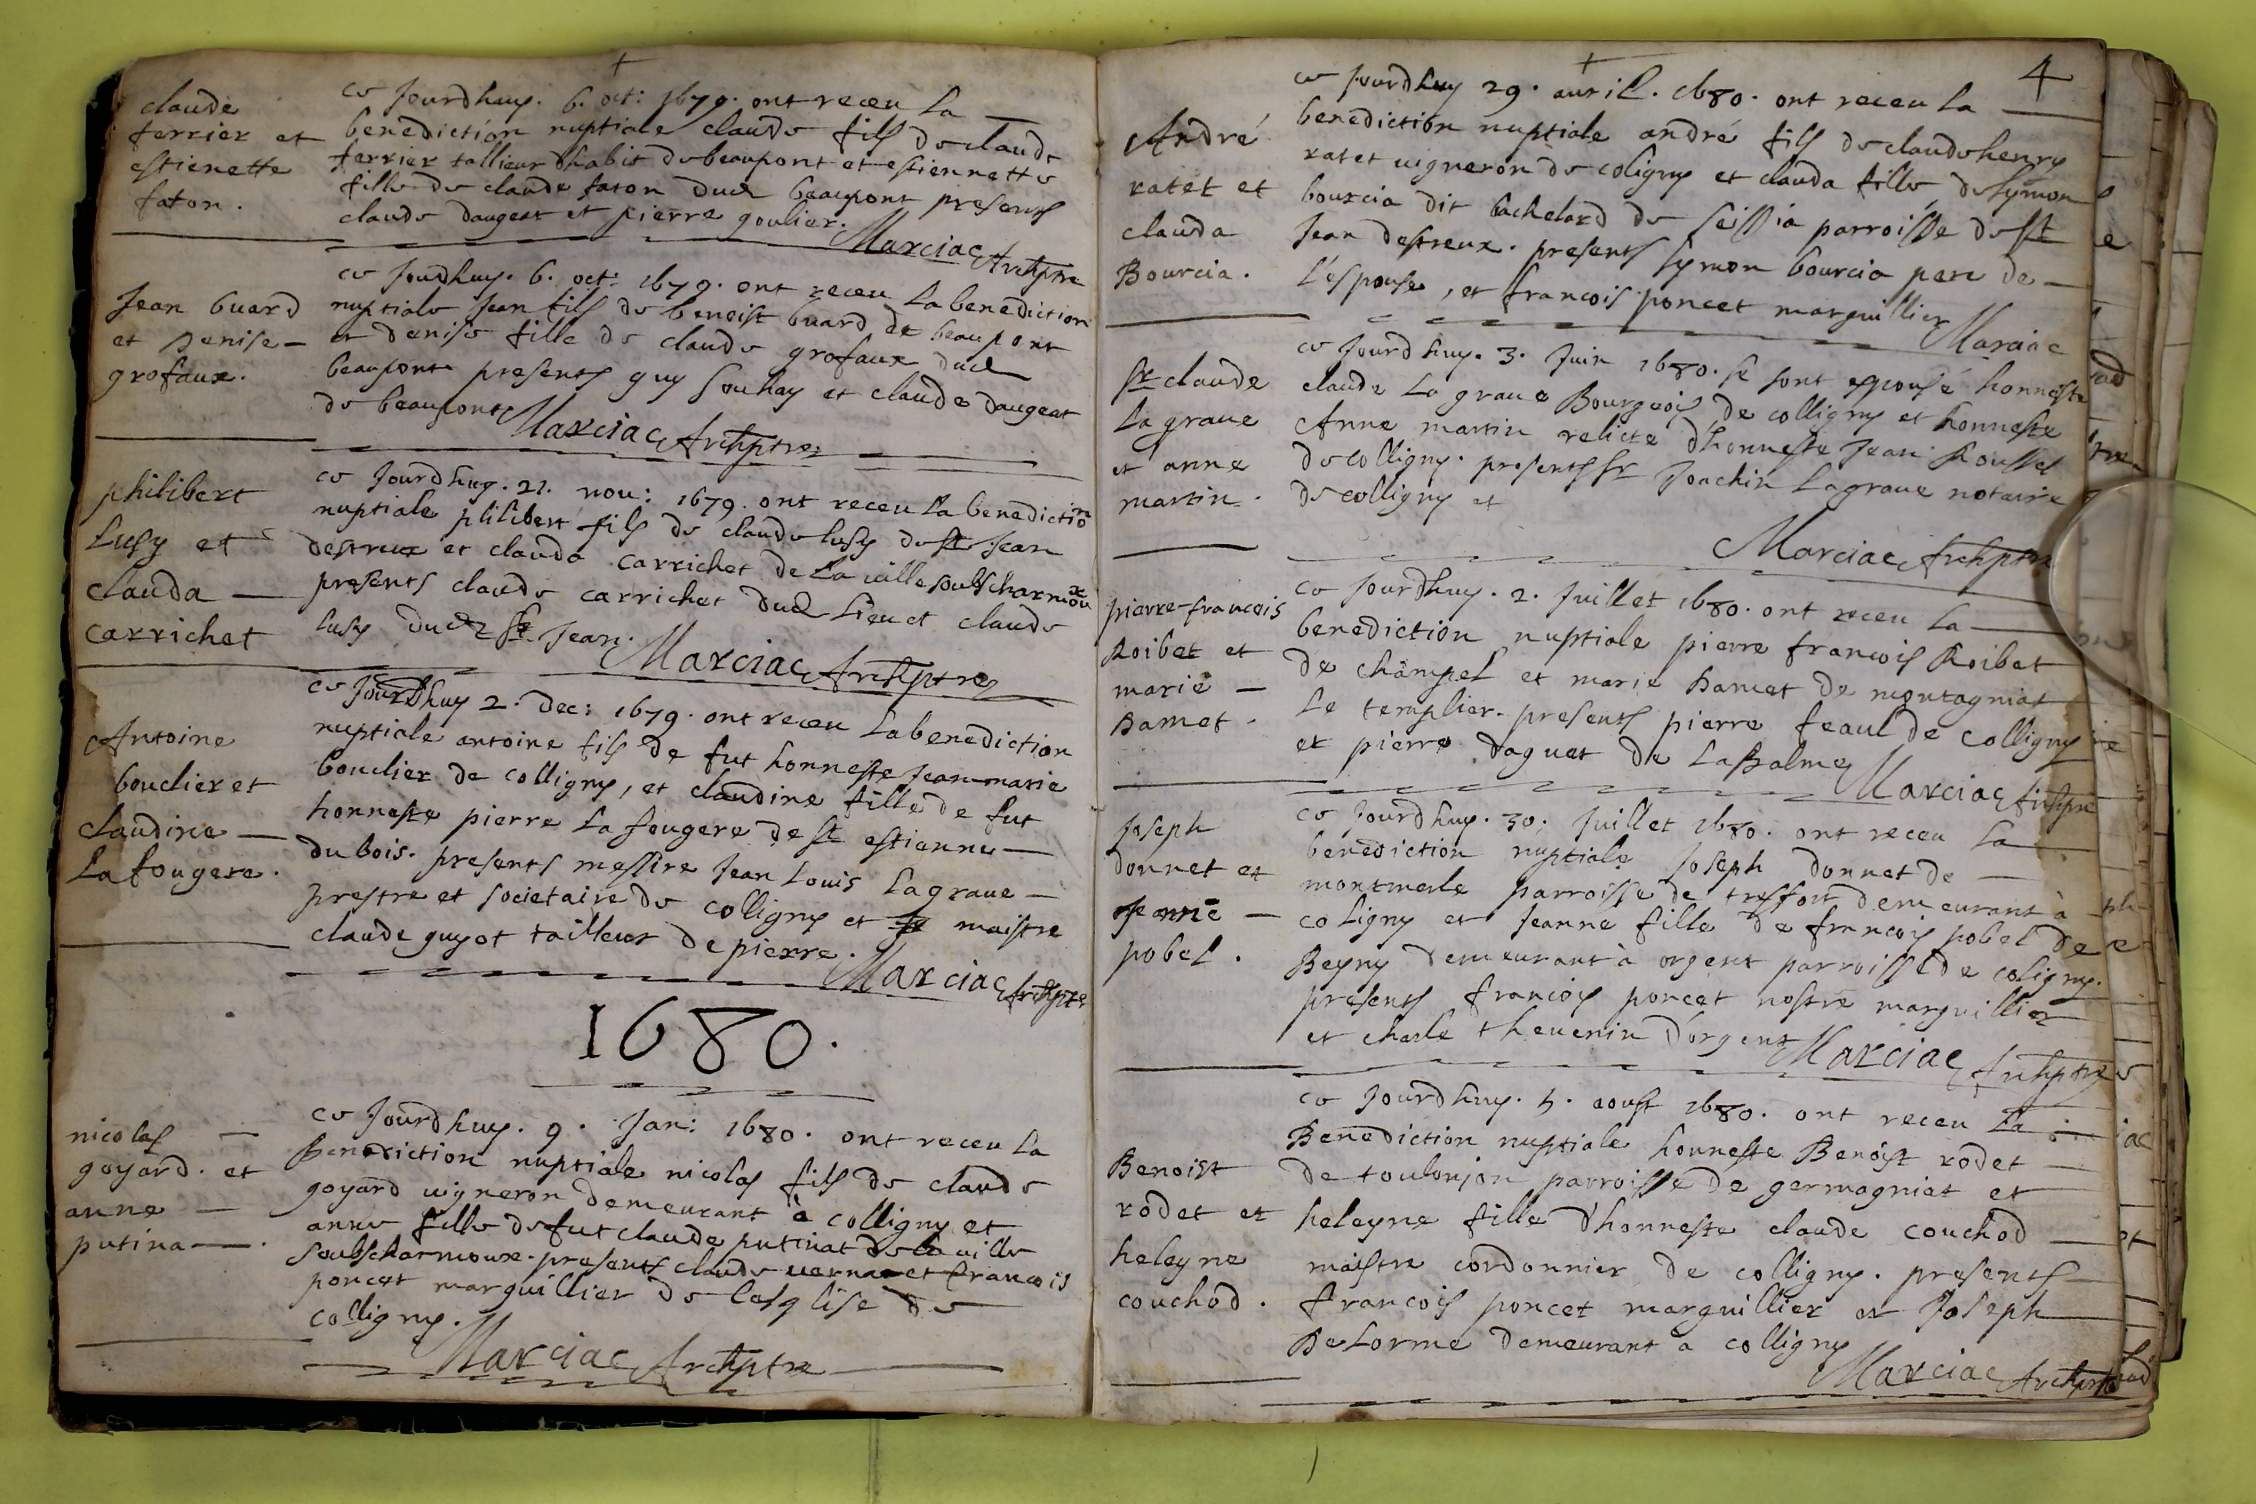 claude
ferrier et
estienette
faton.
ce Jourdhuy. 6. oct: 1679. ont receu La
benediction nuptiale claude fils de claude
ferrier tallieur dhabit de beaupont et estiennette
fille de claude faton dud beaupont presents
claude daugeat et pierre goulier.
Marciac Archptre
Jean buard
et Denise
grofaux.
ce Jourdhuy. 6. oct: 1679. ont receu La benediction
nuptiale Jean fils de benoist buard de beaupont
et denise fille de claude grofaux dud
beaupont presents guy souhay et claude daugeat
de beaupont Marciac Archptre
philibert
Lusy et
clauda
carrichet
ce Jourdhuy. 21. nou: 1679. ont receu La benediction
nuptiale philibert fils de claude lusy de st Jean
destreux et clauda carrichet de La uille soubscharmoux
presents claude carrichet dud Lieu et claude
lusy dud st Jean.
Marciac Archptre
Antoine
bouclier et
claudine
La fougere.
ce Jourdhuy 2. Dec: 1679. ont receu La benediction
nuptiale antoine fils de fut honneste Jean-marie
bouclier de colligny, et claudine fille de fut
honneste pierre La fougere de st estienne
du bois. presents messire Jean Louis Lagraue
prestre et societaire de colligny et maistre
claude guyot tailleur de pierre.
Marciac Archptre
1680.
nicolas
goyard. et
anne
putina.
ce Jourdhuy. 9. Jan: 1680. ont receu La
Benediction nuptiale nicolas fils de claude
goyard uigneron demeurant à colligny et
anne fille de fut claude putinat de la uille
soubscharmoux. presents claude uerna et francois
poncet marguillier de lesglise de
colligny.
Marciac Archptre
4
André
ratet et
clauda
Bourcia.
ce Jourdhuy 29. auril. 1680. ont receu La
benediction nuptiale andré fils de claudehenry
ratet uigneron de coligny et clauda fille de symon
bourcia dit bachelard de seissia parroisse de st
Jean destreux. presents symon bourcia pere de
L'espouse, et francois poncet marguillier
Marciac
sr claude
Lagraue
et anne
martin.
ce Jourdhuy. 3. Juin 1680. se sont espousé honneste
claude Lagraue Bourgeois de colligny et honneste
Anne martin relicte d'honneste Jean Roussel
de colligny. presents sr Joachin Lagraue notaire
de colligny et
Marciac Archptre
pierre-francois
Roibet et
marie
Damet.
ce Jourdhuy. 2. Juillet 1680. ont receu La
benediction nuptiale pierre francois Roibet
de champel et marie Damet de montagniat
Le templier. presents pierre feaul de colligny
et pierre daguet de LaBalme
Marciac Archptre
Joseph
donnet et
Jeanne
pobel.
ce Jourdhuy. 30. Juillet 1680. ont receu La
benediction nuptiale Joseph donnet de
montmerle parroisse de tresfort demeurant à
coligny et Jeanne fille de francois pobel de
Beyny demeurant à orgent parroisse de coligny.
presents francois poncet nostre marguillier
et charle theuenin dorgent
Marciac Archptre
Benoist
rodet et
heleyne
couchod.
ce Jourdhuy. 5. aoust 1680. ont receu La
Benediction nuptiale honneste Benoist rodet
de toulonjon parroisse de germagniat et
heleyne fille d'honneste claude couchod
maistre cordonnier de colligny. presents
francois poncet marguillier et Joseph
DeLorme demeurant a colligny
Marciac Archptre